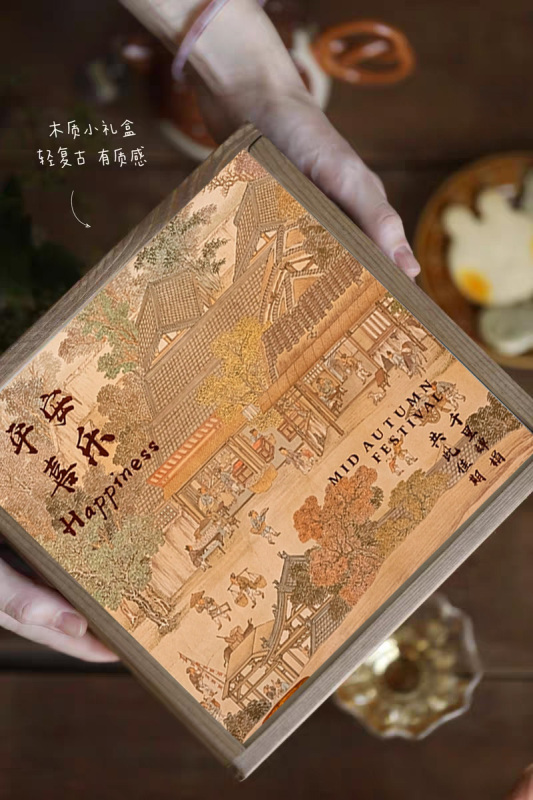 木质小礼盒
轻复古 有质感
平安
喜乐
Happiness
MID AUTUMN
FESTIVAL
千里
共